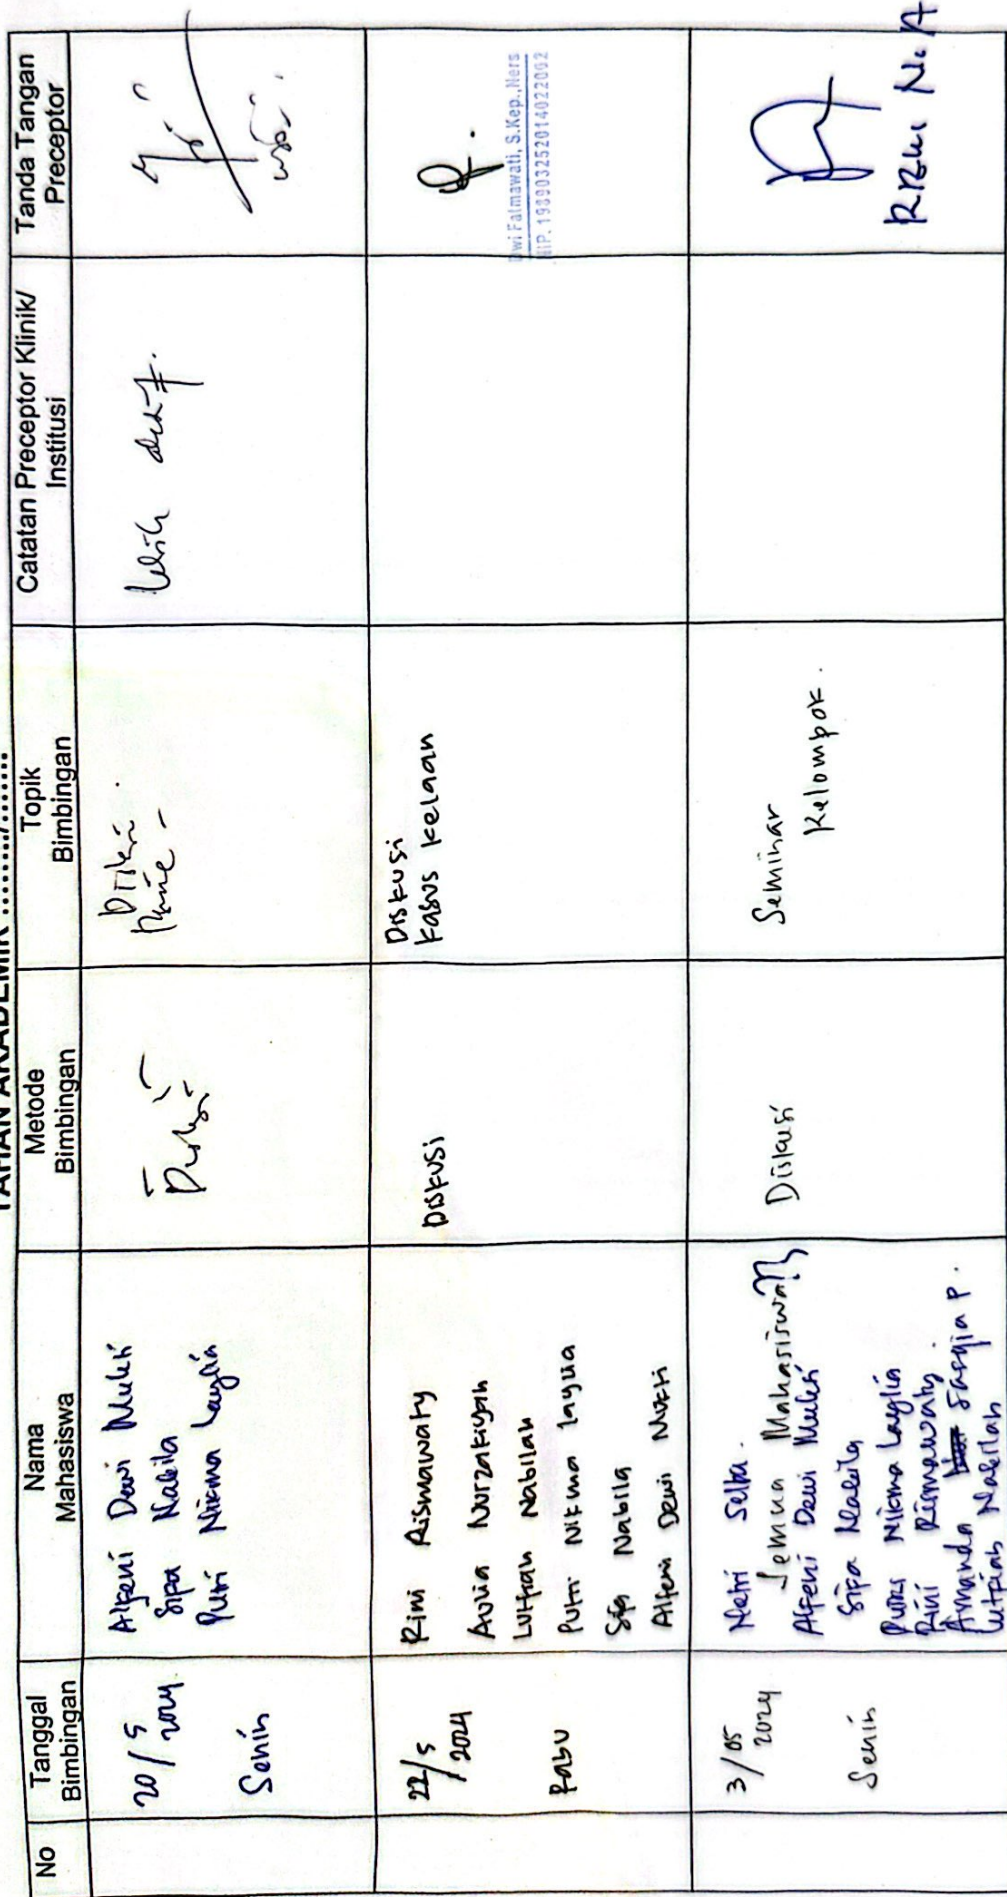 TAHAN AKADEMIK ......../........
No
Tanggal
Bimbingan
Nama
Mahasiswa
Metode
Bimbingan
Topik
Bimbingan
Catatan Preceptor Klinik/
Institusi
Tanda Tangan
Preceptor
20/5
2024
Senin
Alfeni Dewi Mukti
Sipa Nabila
Putri Nikma Laylia
lebih
22/5
/2024
Rabu
Rini Rismawaty
Aulia Nurzakiyah
Lutfiah Nabilah
Putri Nikma Laylia
Sipa Nabila
Alfeni Dewi Mukti
DISKUSI
DISKUSI
Kasus Kelaan
Dwi Fatmawati, S.Kep.,Ners
NIP. 198903252014022002
3/05
2024
Senin
Semua Mahasiswa
Alfeni Dewi Mukti
Sipa Nabila
Nikma Laylia
Rini Rismawaty
Amanda P.
Lutfiah Nabilah
Diskusi
Seminar
Kelompok.
N. A